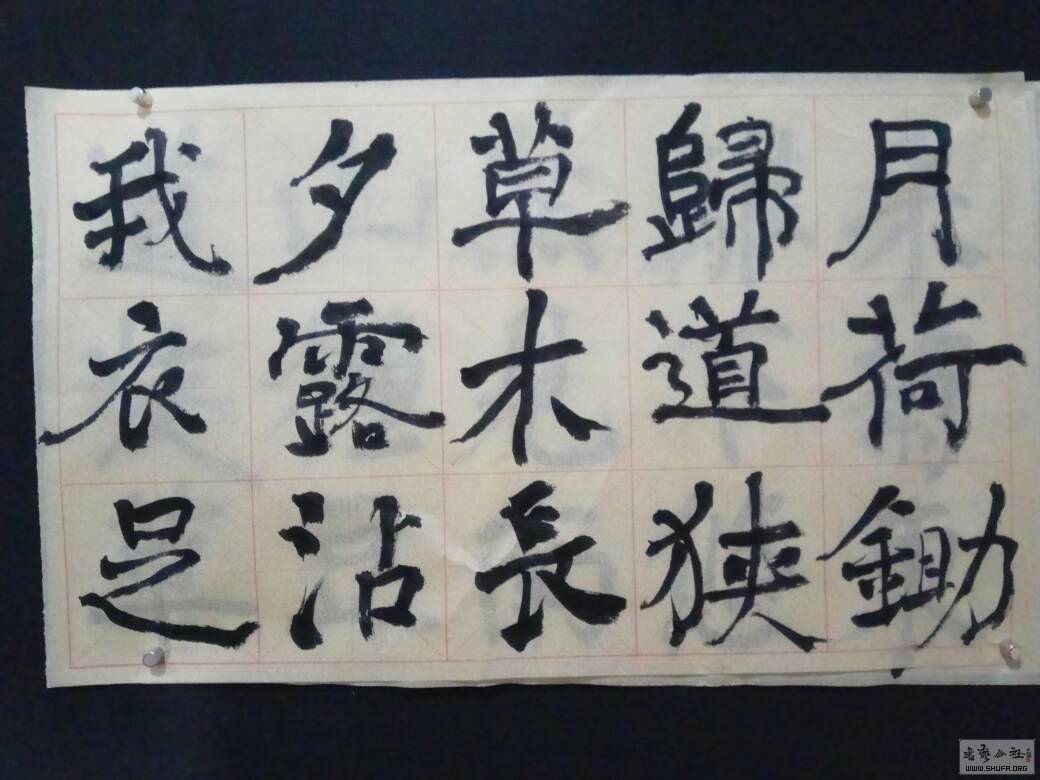 月荷鋤
歸道狹
草木長
夕露沾
我衣足
WWW.SHUFA.ORG